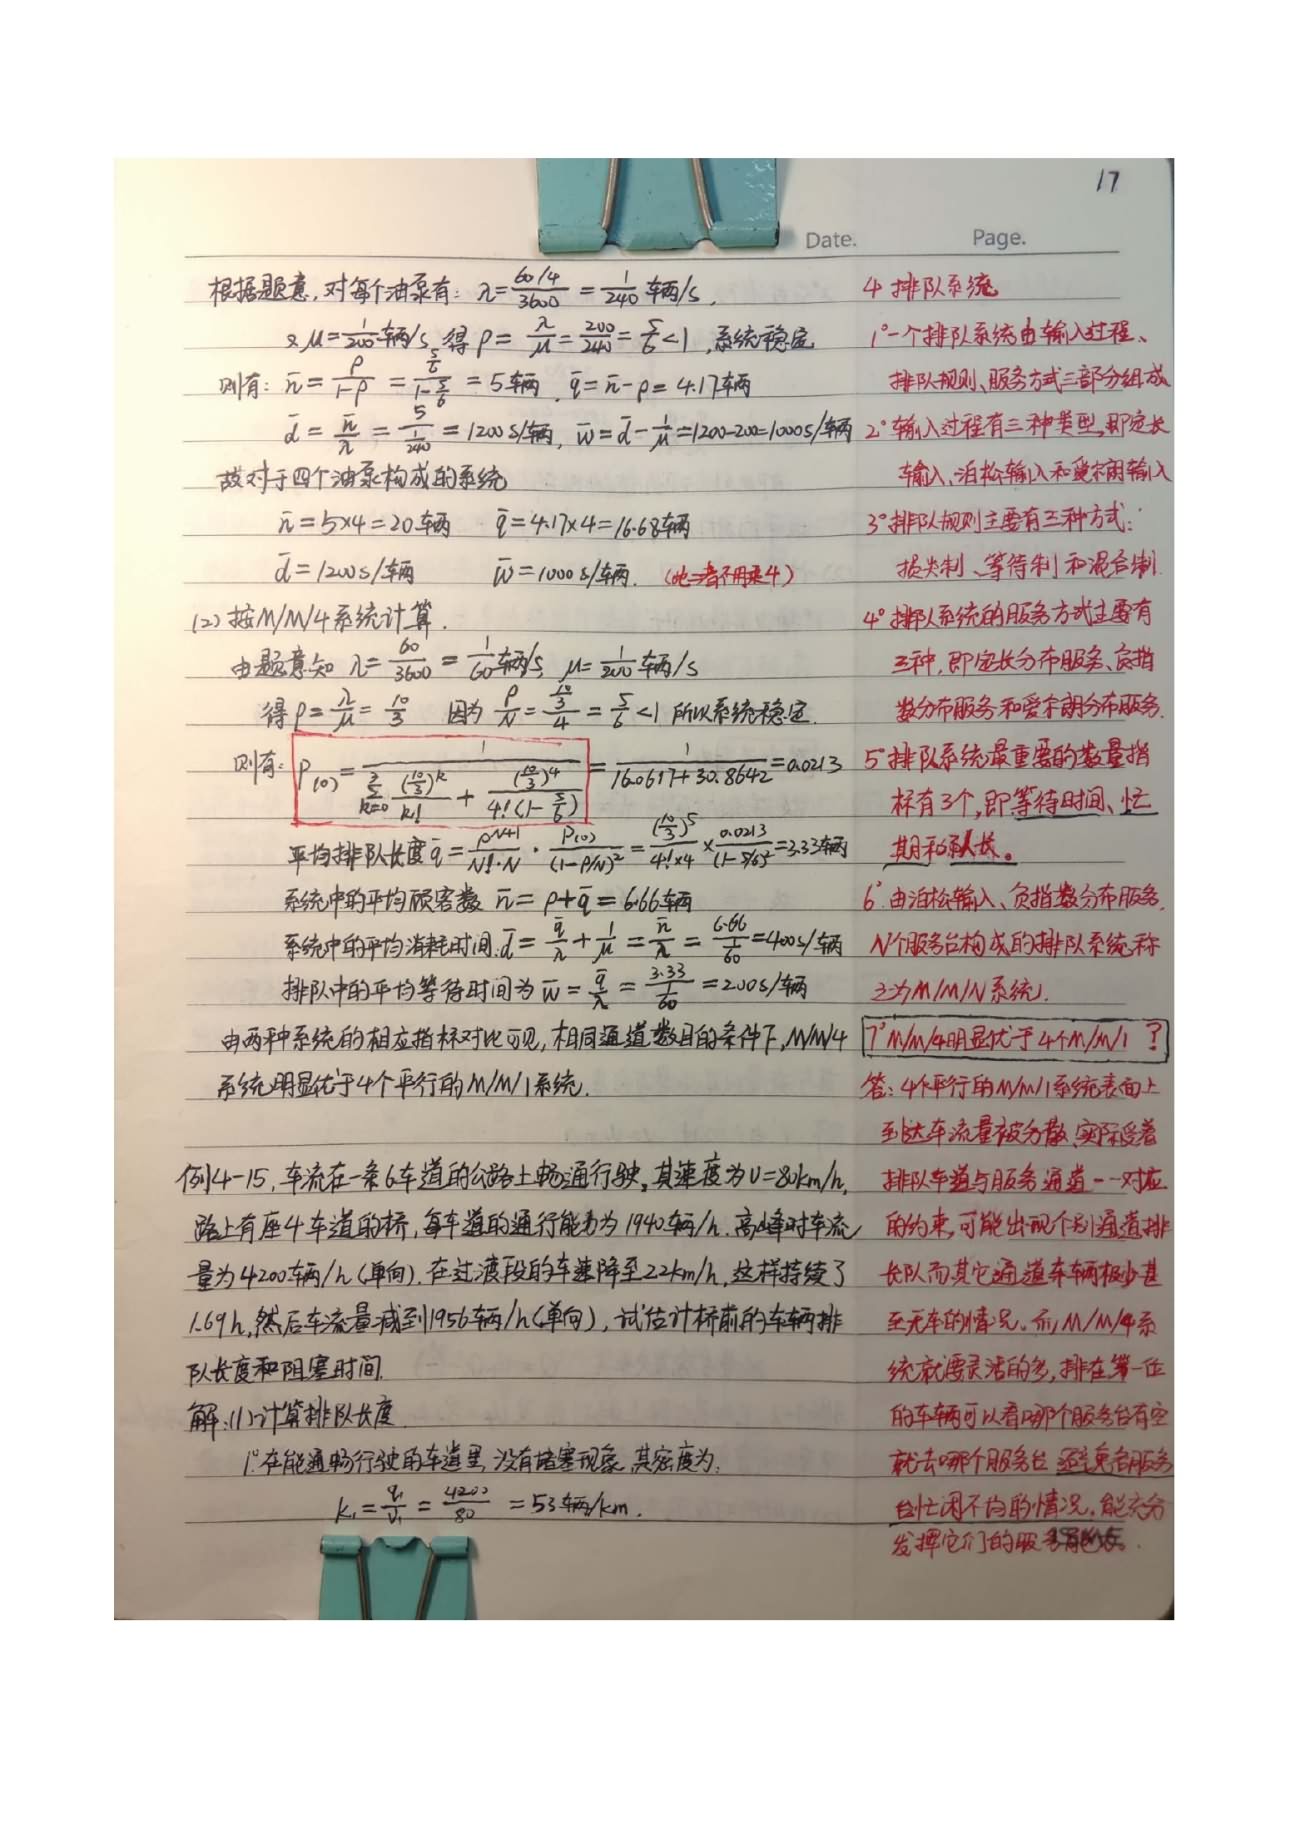 17
Date. Page.
根据题意,对每个油泵有: λ=(60/4)/3600 = 1/240 车辆/s,
又μ=1/200车辆/s, 得ρ = λ/μ = 200/240 = 5/6 <1 ,系统稳定
则有: n̄ = ρ/(1-ρ) = (5/6)/(1-5/6) = 5车辆, q̄ = n̄-ρ = 4.17车辆
d̄ = n̄/λ = 5/(1/240) = 1200s/车辆, w̄ = d̄ - 1/μ =1200-200=1000s/车辆
故对于四个油泵构成的系统
n̄ = 5×4 = 20车辆 q̄ = 4.17×4 = 16.68车辆
d̄ = 1200s/车辆 w̄ = 1000s/车辆. (此二者不用乘4)
(2)按M/M/4系统计算.
由题意知 λ = 60/3600 = 1/60车辆/s, μ = 1/200 车辆/s
得ρ = λ/μ = 10/3 因为 ρ/N = (10/3)/4 = 5/6 <1 所以系统稳定.
则有: P(0) = 1/(Σ(k=0→3) (10/3)^k/k! + (10/3)^4/(4!(1-5/6))) = 1/(16.0617+30.8642) = 0.0213
平均排队长度 q̄ = ρ^(N+1)/(N!·N) · P(0)/(1-ρ/N)² = (10/3)^5/(4!×4) × 0.0213/(1-5/6)² = 3.33车辆
系统中的平均顾客数 n̄ = ρ+q̄ = 6.66车辆
系统中的平均消耗时间: d̄ = q̄/λ + 1/μ = n̄/λ = 6.66/(1/60) = 400s/车辆
排队中的平均等待时间为 w̄ = q̄/λ = 3.33/(1/60) = 200s/车辆
由两种系统的相应指标对比可见,相同通道数目的条件下,M/M/4
系统明显优于4个平行的M/M/1系统.
例4-15, 车流在一条6车道的公路上畅通行驶,其速度为V=80km/h,
路上有座4车道的桥,每车道的通行能力为1940车辆/h. 高峰时车流
量为4200车辆/h(单向). 在过渡段的车速降至22km/h, 这样持续了
1.69h, 然后车流量减到1956车辆/h(单向), 试估计桥前的车辆排
队长度和阻塞时间.
解:(1)计算排队长度
1°.在能通畅行驶的车道里,没有堵塞现象,其密度为:
K₁ = q₁/V₁ = 4200/80 = 53车辆/km.
4 排队系统
1°一个排队系统由输入过程、
排队规则、服务方式三部分组成
2°输入过程有三种类型,即定长
输入、泊松输入和爱尔朗输入
3°排队规则主要有三种方式:
损失制、等待制和混合制.
4°排队系统的服务方式主要有
三种, 即定长分布服务、负指
数分布服务和爱尔朗分布服务.
5°排队系统最重要的数量指
标有3个,即等待时间、忙
期和队长。
6°.由泊松输入、负指数分布服务,
N个服务台构成的排队系统称
之为M/M/N系统.
7°M/M/4明显优于4个M/M/1 ?
答:4个平行的M/M/1系统表面上
到达车流量被分散,实际受着
排队车道与服务通道一一对应
的约束,可能出现个别通道排
长队而其它通道车辆极少甚
至无车的情况. 而M/M/4系
统就要灵活的多,排在第一位
的车辆可以看哪个服务台有空
就去哪个服务台, 避免各服务
台忙闲不均的情况, 能充分
发挥它们的服务